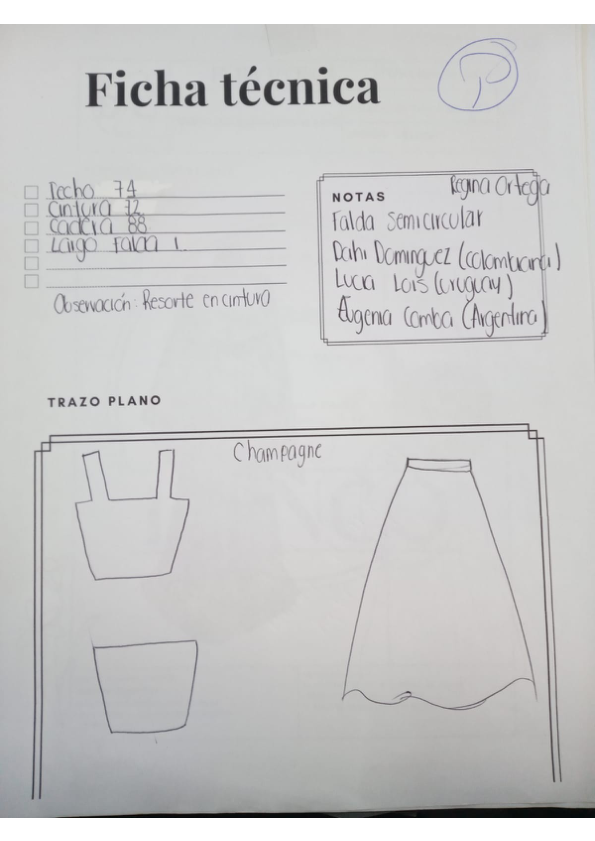 Ficha técnica
P
Pecho 74
Cintura 72
Cadera 88
Largo Falda 1.
Observación: Resorte en cintura
NOTAS
Regina Ortega
Falda Semicircular
Dahi Dominguez (colombiana)
Lucia Lois (Uruguay)
Eugenia Comba (Argentina)
TRAZO PLANO
Champagne